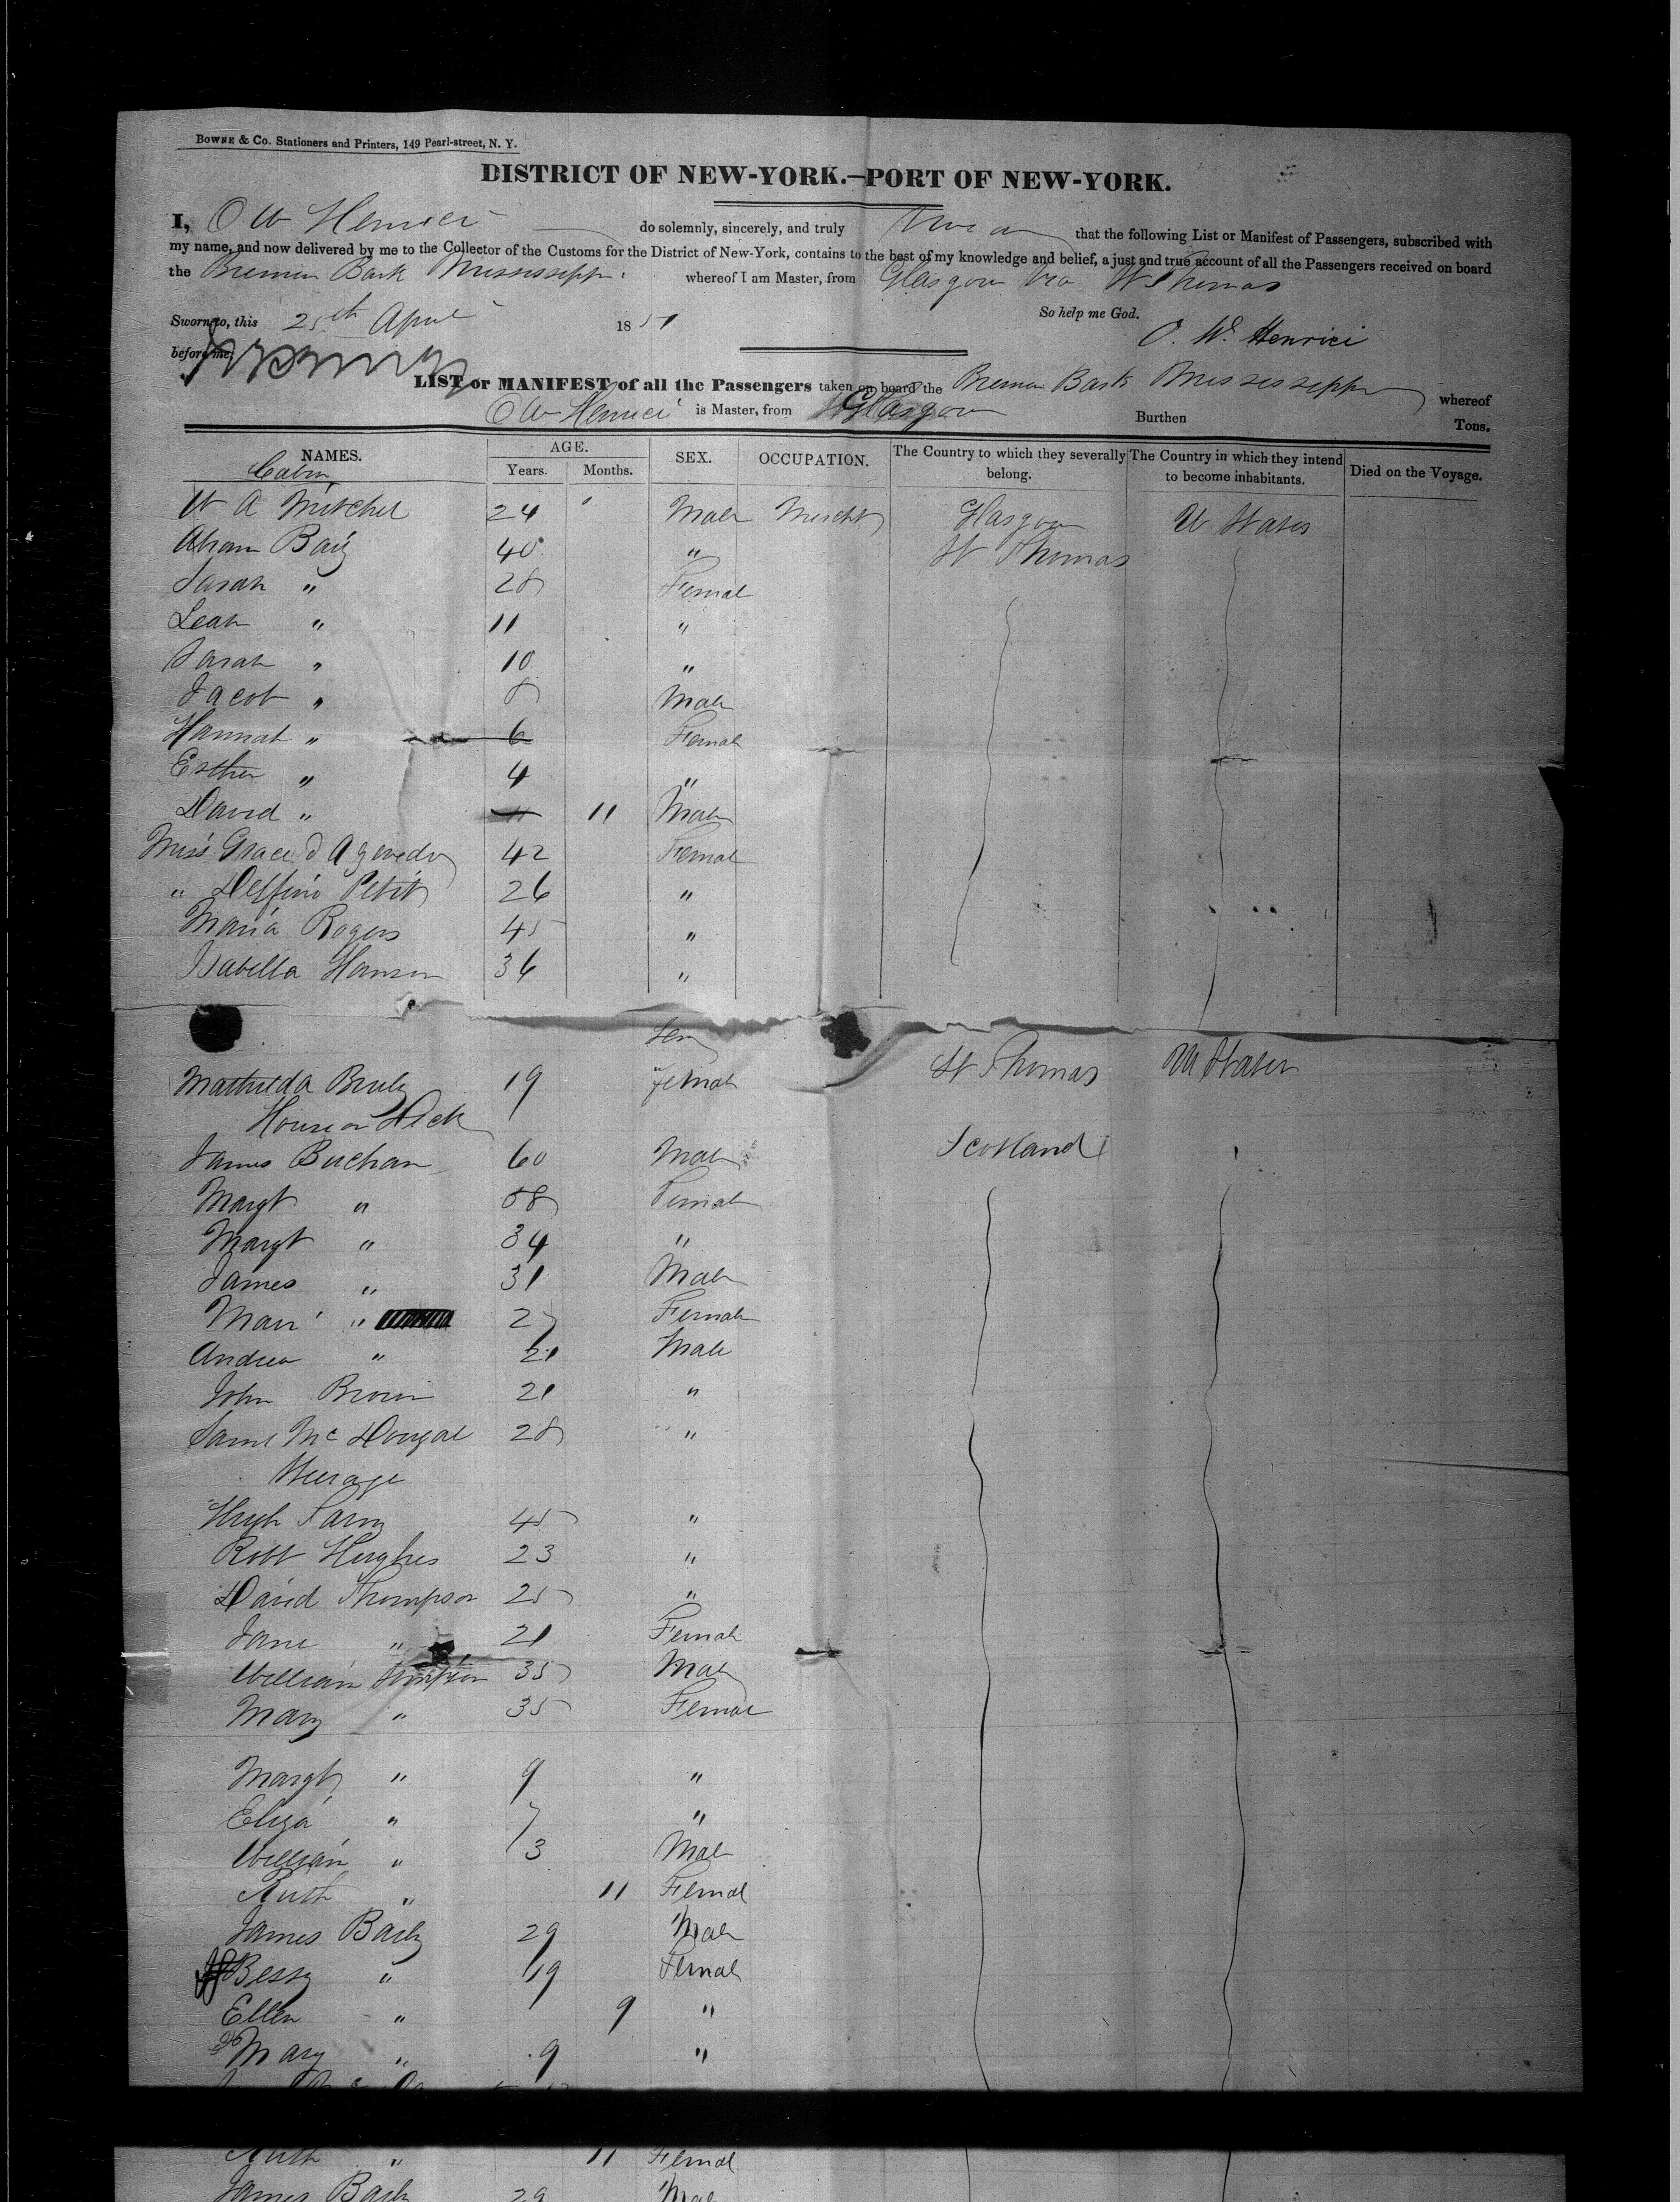 BOWNE & CO. Stationers and Printers, 149 Pearl-street, N. Y.
DISTRICT OF NEW-YORK.—PORT OF NEW-YORK.
I, O W Henrici do solemnly, sincerely, and truly swear that the following List or Manifest of Passengers, subscribed with
my name, and now delivered by me to the Collector of the Customs for the District of New-York, contains to the best of my knowledge and belief, a just and true account of all the Passengers received on board
the Bremen Bark Mississippi whereof I am Master, from Glasgow via St Thomas
So help me God.
Sworn to, this 25th April 1851
O. W. Henrici
before me,
LIST or MANIFEST of all the Passengers taken on board the Bremen Bark Mississippi whereof
O W Henrici is Master, from Glasgow Burthen Tons.
NAMES. AGE. Years. Months. SEX. OCCUPATION. The Country to which they severally belong. The Country in which they intend to become inhabitants. Died on the Voyage.
Cabin
W A Mitchel 24 Male Mercht Glasgow U States
Abam 40 " St Thomas
Sarah " 28 Femal
Leah " 11 "
Sarah " 10 "
Jacob " 8 Male
Hannah " 6 Female
Esther " 4 "
David " 11 Male
Miss Grace D 42 Female
" Delfino Petit 26 "
Maria Rogers 45 "
Isabella Hanson 36 "
Fem
Mathilda 19 Female St Thomas U States
House on Deck
James Buchan 60 Male Scotland
Margt " 58 Female
Margt " 34 "
James " 31 Male
Mary " 27 Female
Andrew " 21 Male
John Brown 21 "
James McDougal 28 "
Steerage
Hugh 45 "
Robt Hughes 23 "
David Thompson 25 "
Jane " 21 Female
William Simpson 35 Male
Mary " 35 Female
Margt " 9 "
Eliza " 7 "
William " 3 Male
Ruth " 11 Femal
James 29 Male
Bessy " 19 Female
Ellen " 9 "
Mary " 9 "
Ruth " 11 Femal
James 29 Mal